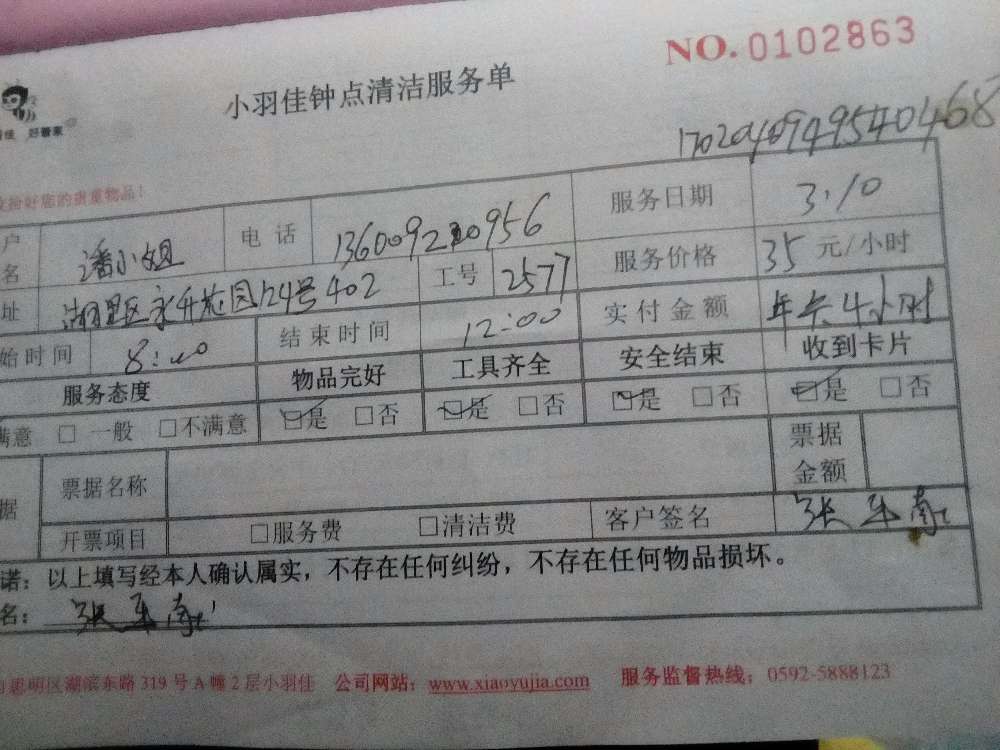 NO. 0102863
小羽佳钟点清洁服务单
佳 好管家
1702040949540468
好您的贵重物品！
户名 潘小姐 电话 13609210956 服务日期 3.10
址 湖里区永升花园124号402 工号 2577 服务价格 35 元/小时
始时间 8:00 结束时间 12:00 实付金额 年卡4小时
服务态度 物品完好 工具齐全 安全结束 收到卡片
满意 □ 一般 □不满意 ☑是 □否 ☑是 □否 ☑是 □否 ☑是 □否
据 票据名称 票据金额
开票项目 □服务费 □清洁费 客户签名 张
诺：以上填写经本人确认属实，不存在任何纠纷，不存在任何物品损坏。
名： 张
思明区湖滨东路 319 号 A 幢 2 层小羽佳 公司网站：www.xiaoyujia.com 服务监督热线：0592-5888123